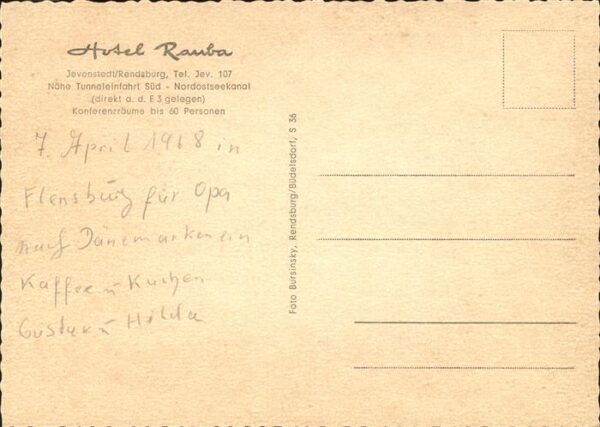 Hotel Rauba
Jevenstedt/Rendsburg, Tel. Jev. 107
Nähe Tunneleinfahrt Süd - Nordostseekanal
(direkt a. d. E 3 gelegen)
Konferenzräume bis 60 Personen
7. April 1968 in
Flensburg für Opa
nach Dänemark
Kaffee u Kuchen
Gustav u Hilda
Foto Bursinsky, Rendsburg/Büdelsdorf, S 36